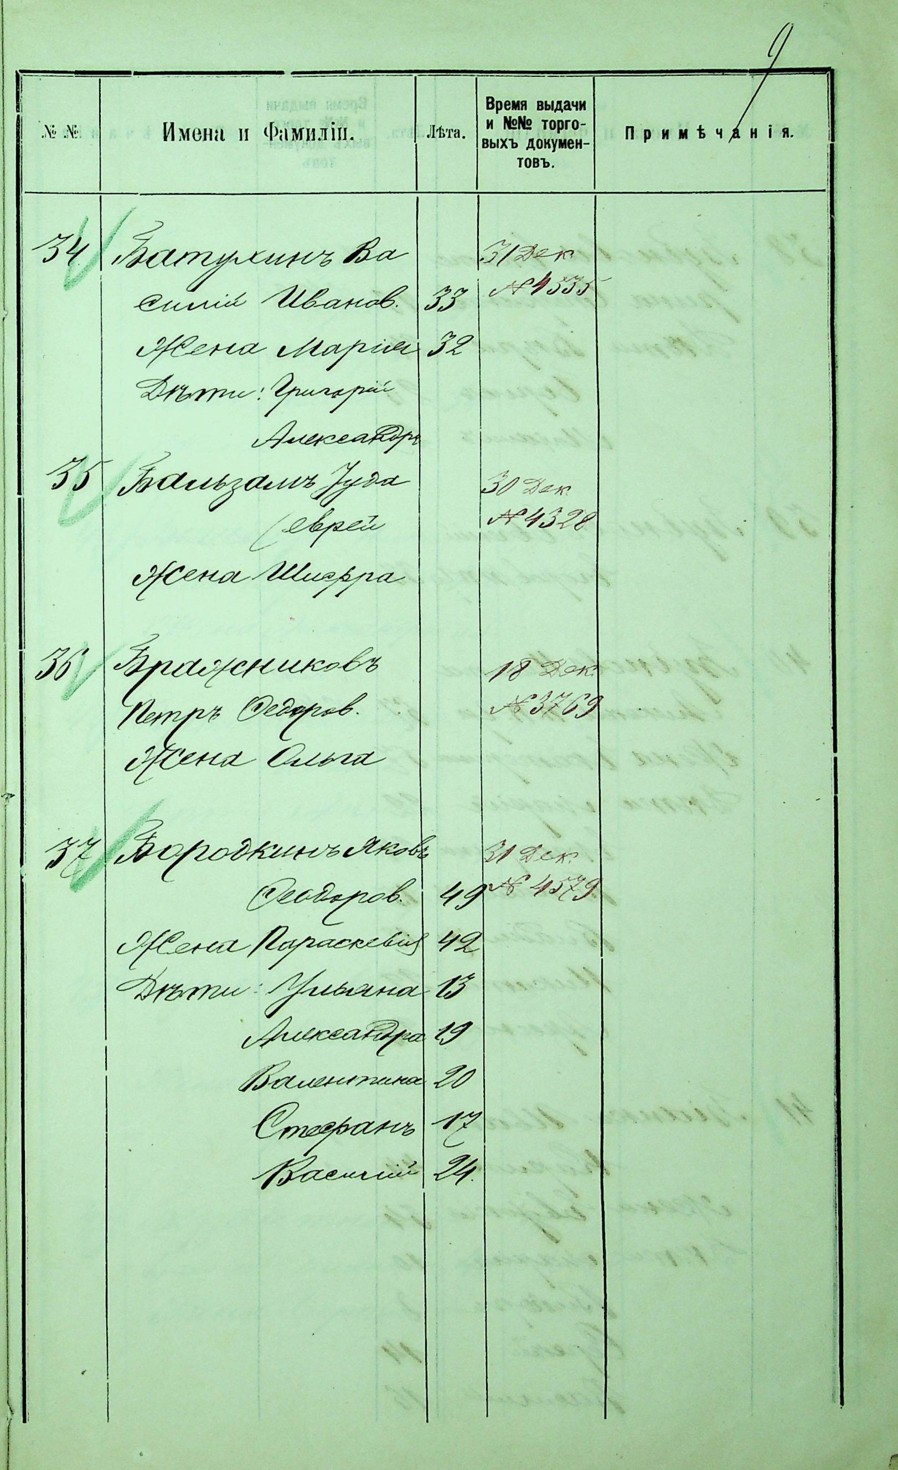 9
№ №.
Имена и Фамиліи.
Лѣта.
Время выдачи
и №№ торго-
выхъ докумен-
товъ.
Примѣчанія.
34 Батухинъ Ва 31 Дек
силій Иванов. 33 № 4535
Жена Марія 32
Дѣти: Григорій
Александръ
35 Бальзамъ Іуда 30 Дек
(еврей № 4328
Жена Шифра
36 Бражниковъ 18 Дек.
Петръ Ѳедоров. № 3769
Жена Ольга
37 Бородкинъ Яковъ 31 Дек.
Ѳеодоров. 49 № 4579
Жена Параскевія 42
Дѣти: Ульяна 13
Александра 19
Валентина 20
Стефанъ 17
Василій 24.